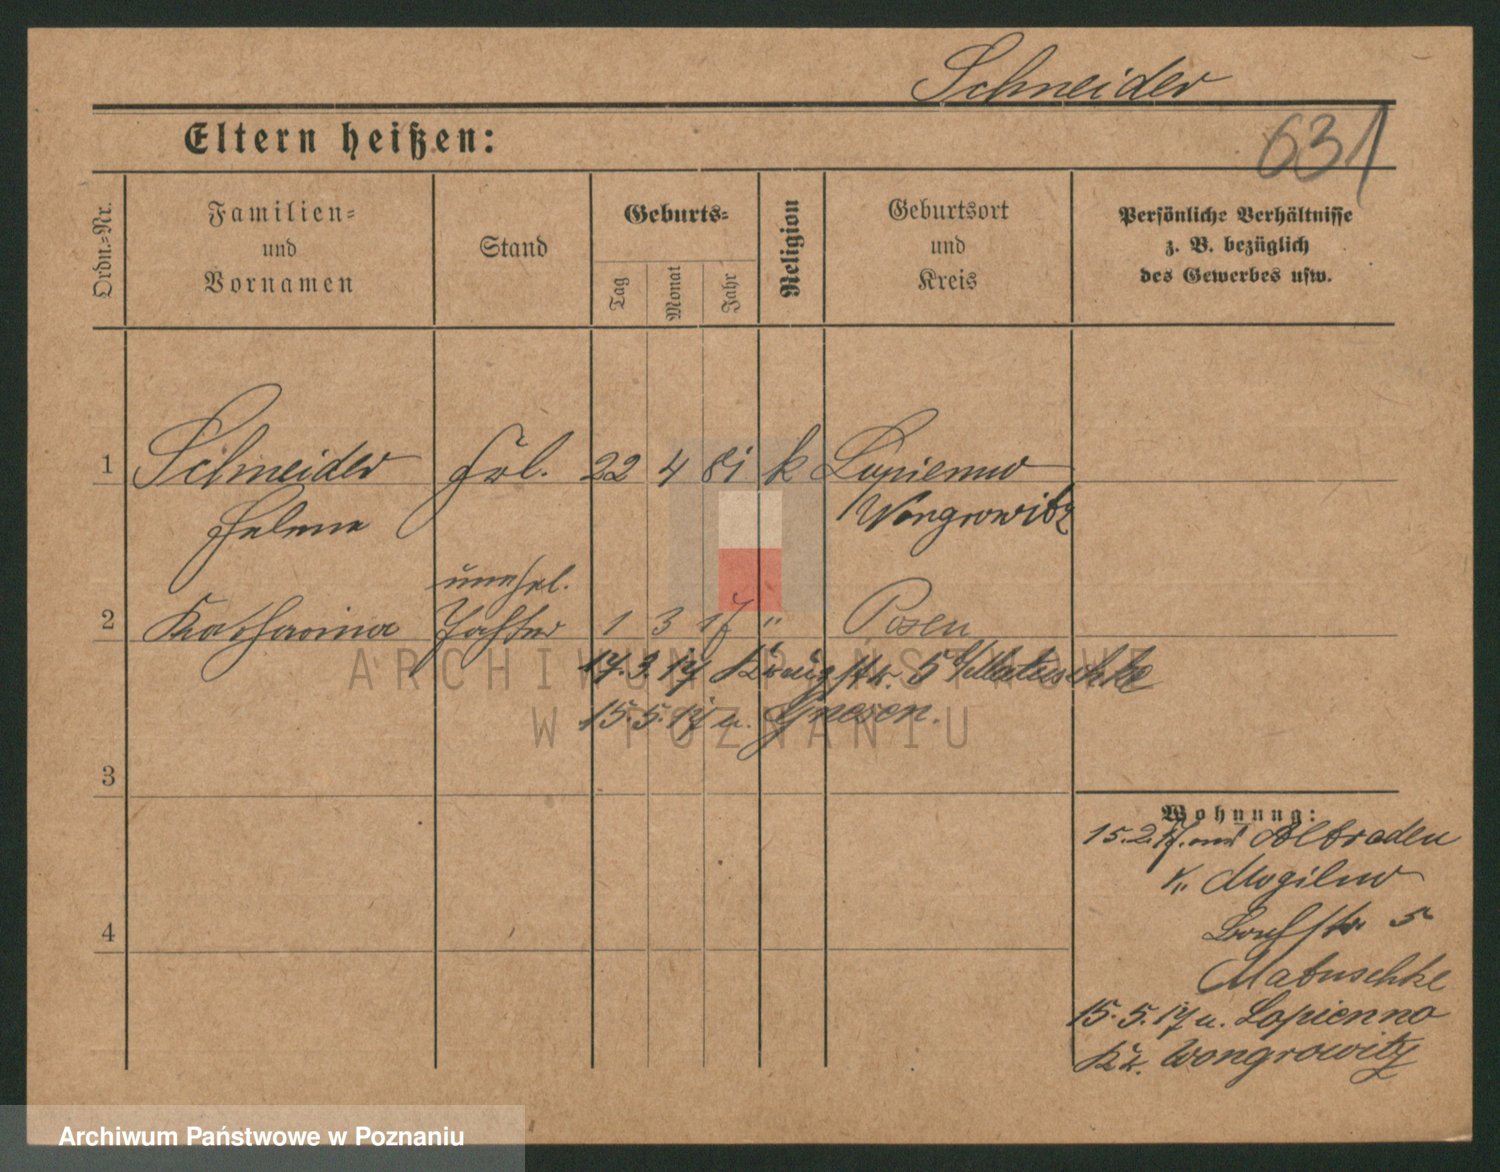 Schneider
Eltern heißen:
631
Ordn.=Nr.
Familien=
und
Vornamen
Stand
Geburts=
Tag
Monat
Jahr
Religion
Geburtsort
und
Kreis
Persönliche Verhältnisse
z. B. bezüglich
des Gewerbes usw.
1 Schneider Frl. 22 4 81 k Lopienno
Helene Wongrowitz
unehel.
2 Katharina Tochter 1 3 17 " Posen
17.3.17 5 Matuschke
15.5.17 n. Gnesen.
ARCHIWUM PAŃSTWOWE
W POZNANIU
3
Wohnung:
15.2.17. Altraden
Kr. Mogilno
5
4
Matuschke
15.5.17 n. Lopienno
Kr. Wongrowitz
Archiwum Państwowe w Poznaniu